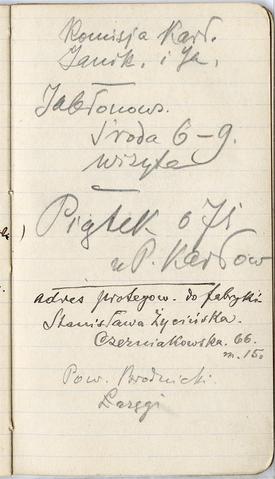 Komisja Karł.
Janik. i Ja.
Jabłonows.
Środa 6–9.
wizyta
Piątek o 7½
u P. Karłow
adres protegow. do fabryki
Stanisława Życińska.
Czerniakowska. 66.
m. 15.
Pow. Brodnicki.